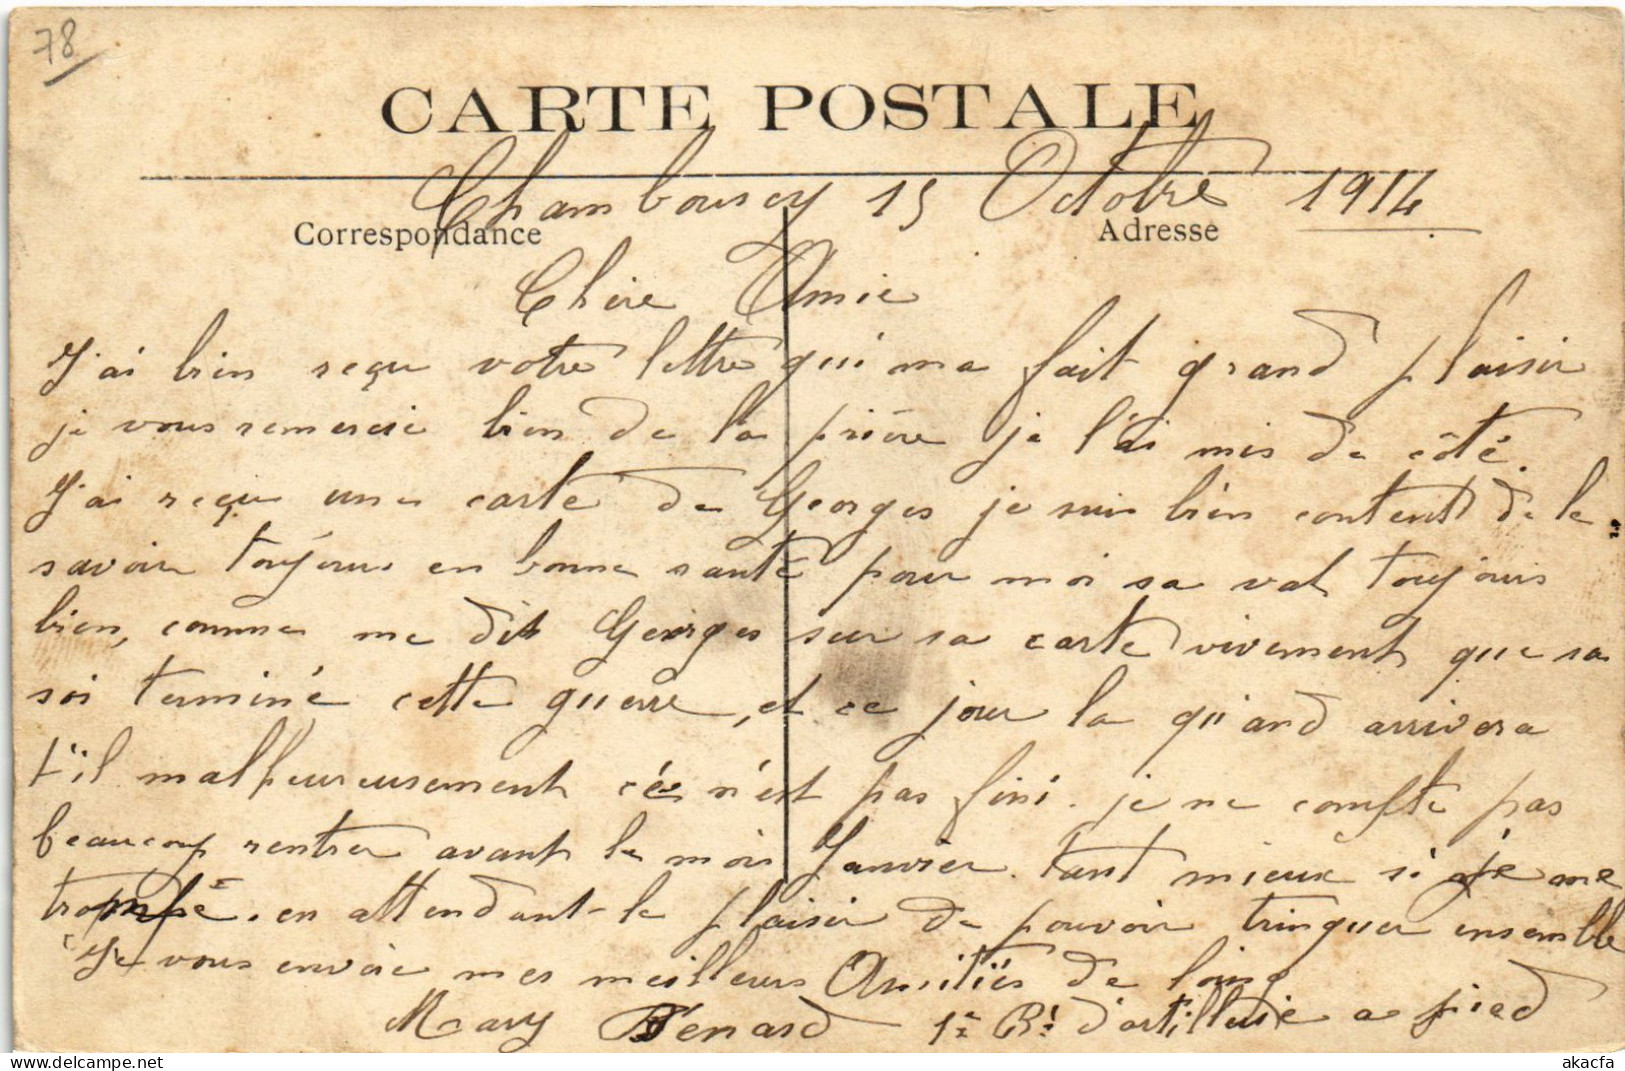 78
CARTE POSTALE
Chambourcy 15 Octobre 1914
Correspondance
Adresse
Chère Amie
J'ai bien reçu votre lettre qui ma fait grand plaisir
je vous remercie bien de la prière je l'ai mis de côté.
J'ai reçu une carte de Georges je suis bien content de le
savoir toujours en bonne santé pour moi sa vat toujours
bien, comme me dit Georges sur sa carte vivement que sa
soi terminé cette guerre, et ce jour la quand arrivera
t'il malheureusement ce n'est pas fini. je ne compte pas
beaucoup rentrer avant le mois Janvier. tant mieux si je me
trompé. en attendant le plaisir de pouvoir trinquer ensemble
Je vous envoie mes meilleurs Amitiés de loing
Mary Bénard 1e Bie d'artillerie a pied
akacfa